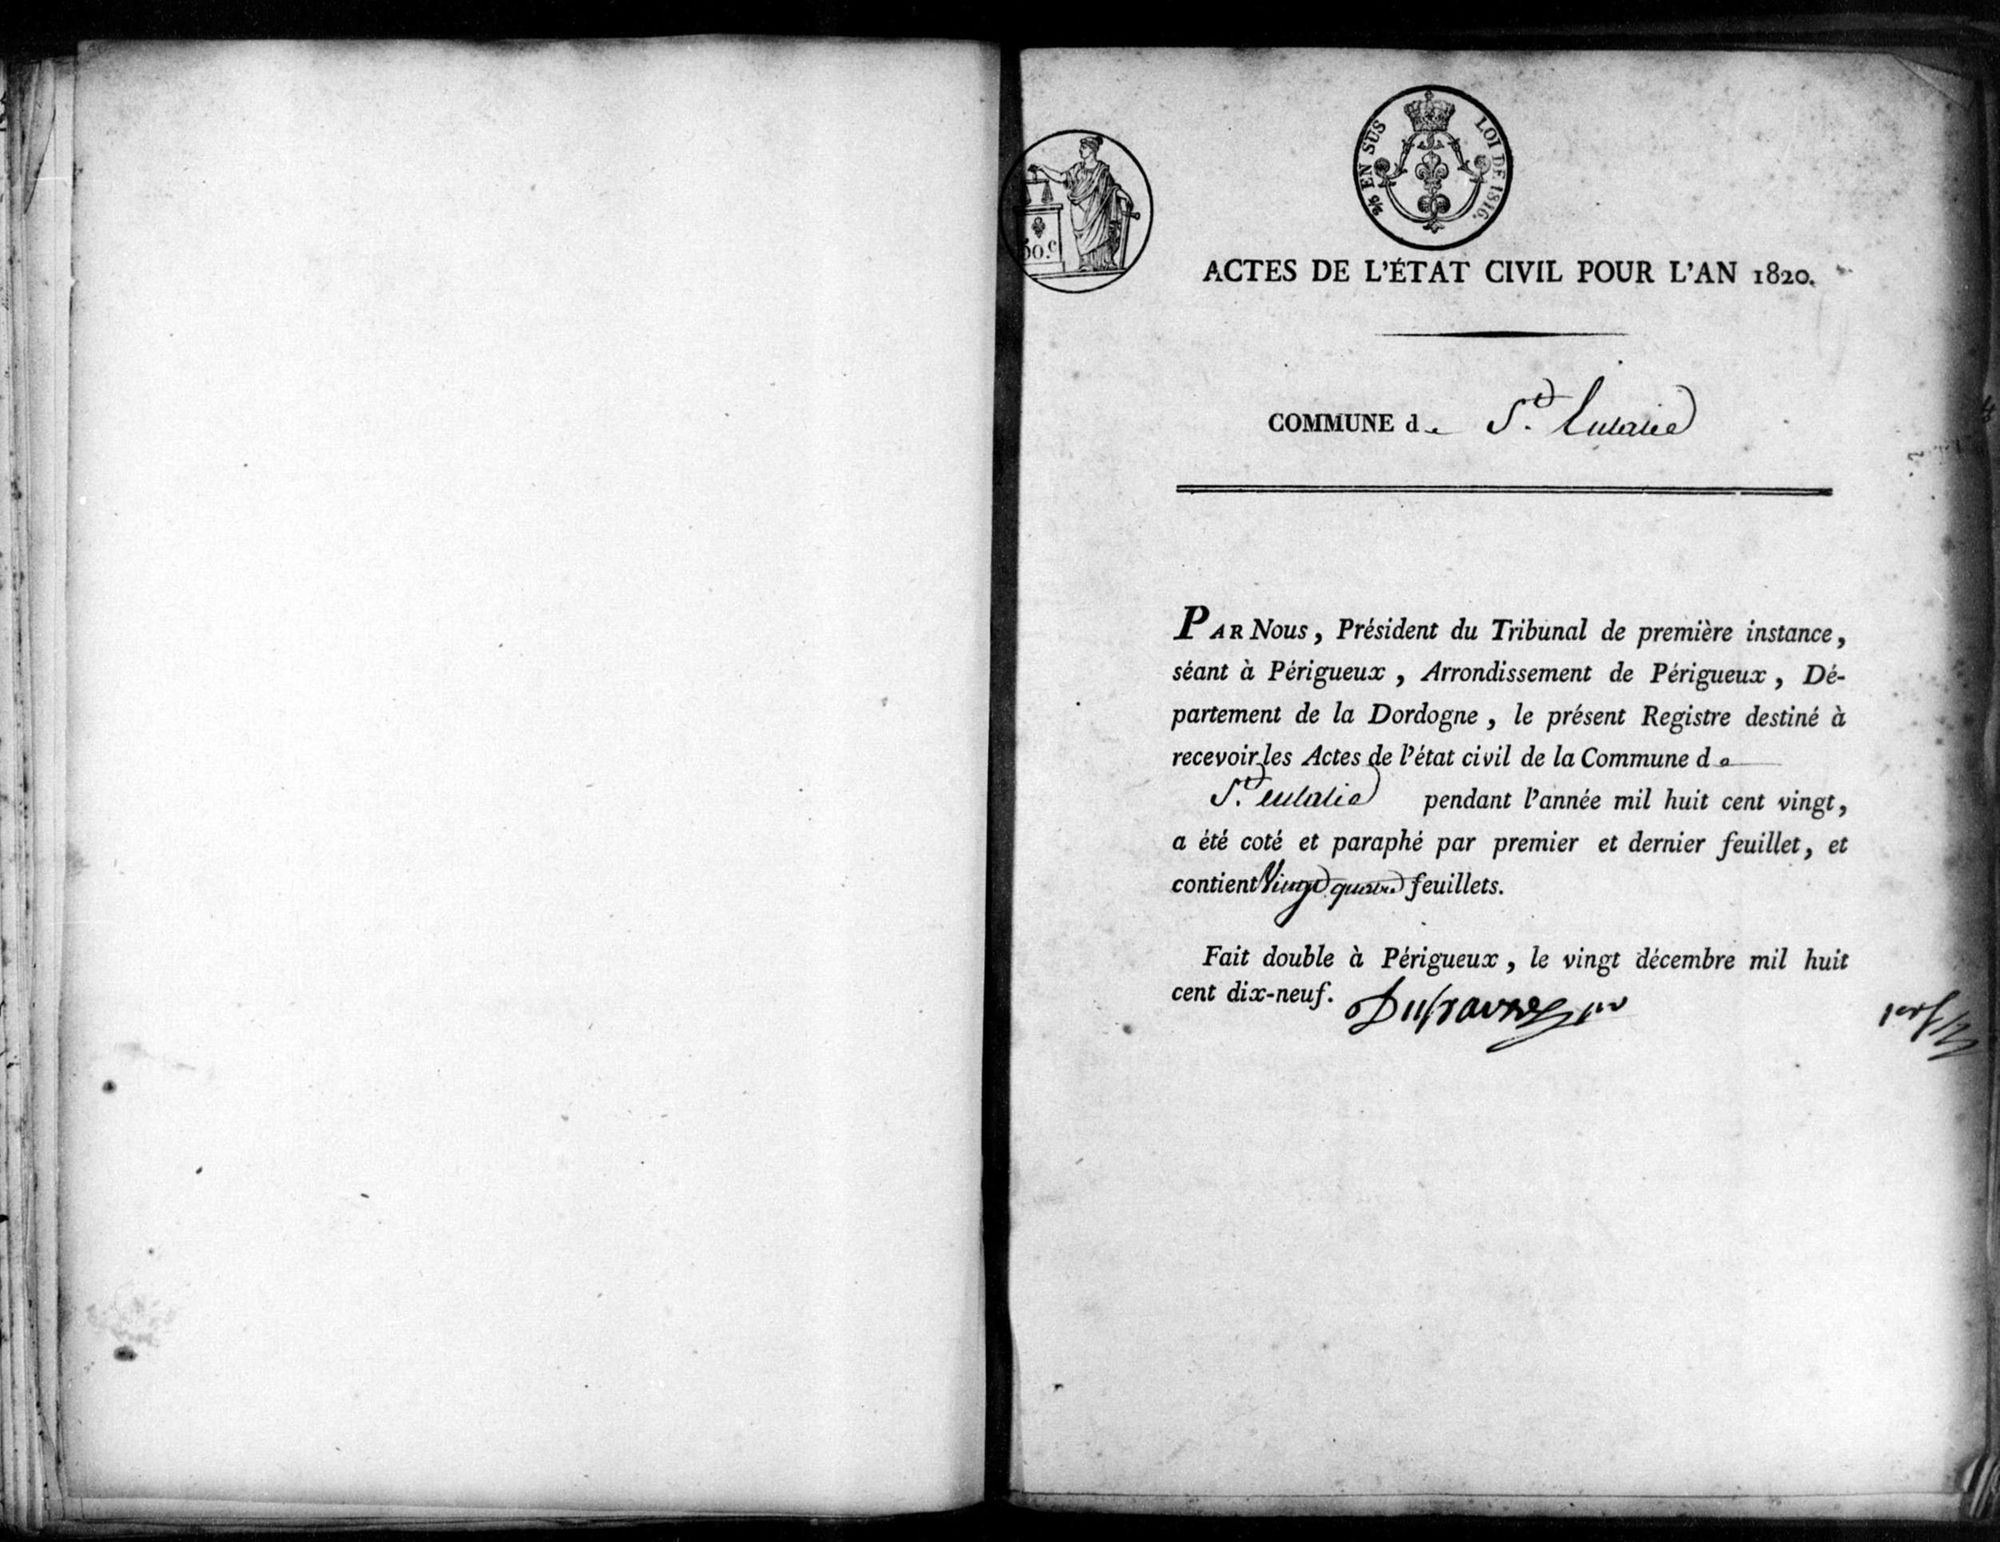 EN SUS LOI DE 1816.
50.c
ACTES DE L'ÉTAT CIVIL POUR L'AN 1820.
COMMUNE de Ste Eulalie
PAR Nous, Président du Tribunal de première instance,
séant à Périgueux, Arrondissement de Périgueux, Dé-
partement de la Dordogne, le présent Registre destiné à
recevoir les Actes de l'état civil de la Commune de
Ste eulalie pendant l'année mil huit cent vingt,
a été coté et paraphé par premier et dernier feuillet, et
contient Vingt quatre feuillets.
Fait double à Périgueux, le vingt décembre mil huit
cent dix-neuf.